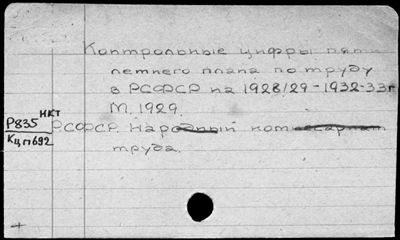 Контрольные цифры пяти
летнего плана по труду
в РСФСР на 1928/29-1932-33г
М. 1929.
НКТ
Р835
Кцп692
РСФСР. Народный комиссариат
труда.